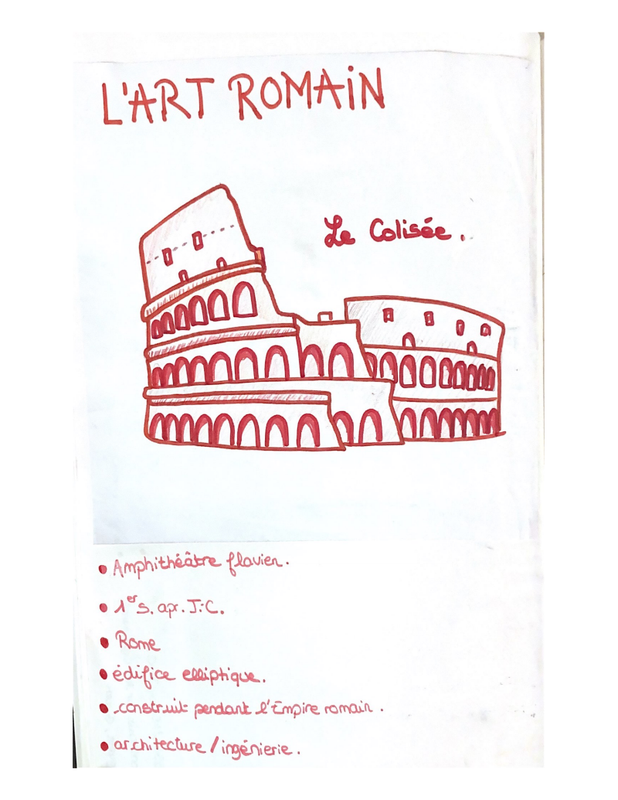 L'ART ROMAiN
Le Colisée.
• Amphithéâtre flavien.
• 1er s. apr. J.-C.
• Rome
• édifice elliptique.
• construit pendant l'Empire romain.
• architecture / ingénierie.